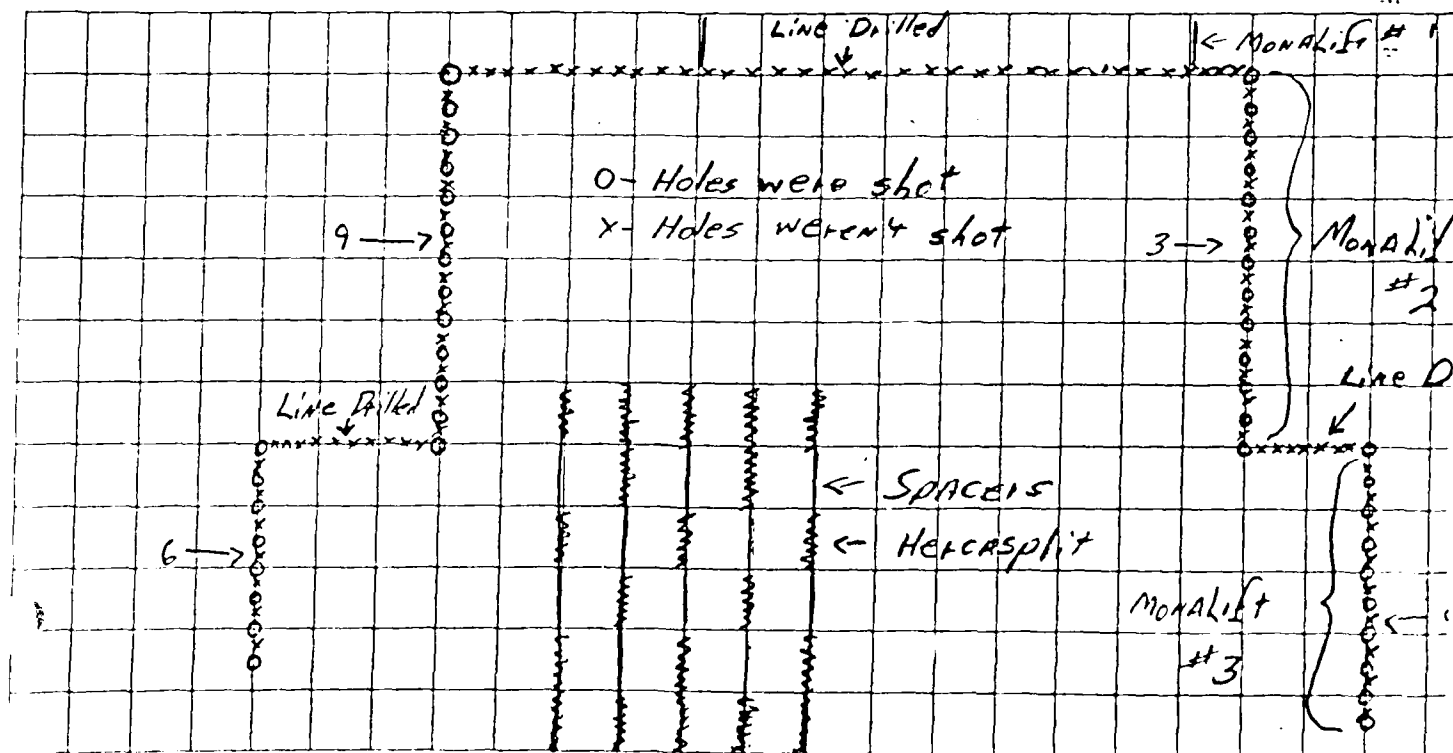 Line Drilled
← MonALift #
O- Holes were shot
X- Holes weren't shot
9 →
3 →
MonALif
#2
Line D
Line Drilled
← SPACERS
← HercAsplit
6 →
MonALift
#3